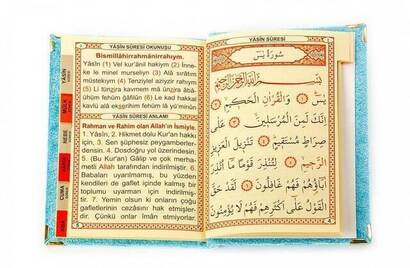 YÂSÎN SÛRESİ OKUNUŞU
Bismillâhirrahmânirrahıym.
Yâsîn (1) Vel kur'ânil hakiym (2) İnne-
ke le minel murseliyn (3) Alâ sırâtım
müstekıym (4) Tenziylel aziyzir rahıym
(5) Li tünzira kavmem mâ ünzira âbâ-
ühüm fehüm ğâfilûn (6) Le kad hakkal
kavlü alâ ekserihim fehüm lâ yü'minûn
YÂSÎN SÛRESİ ANLAMI
Rahman ve Rahim olan Allah'ın İsmiyle.
1. Yâsîn, 2. Hikmet dolu Kur'an hakkı
için, 3. Sen şüphesiz peygamberler-
densin. 4. Dosdoğru yol üzerindesin.
5. (Bu Kur'an) Gâlip ve çok merha-
metli Allah tarafından indirilmiştir. 6.
Babaları uyarılmamış, bu yüzden
kendileri de gaflet içinde kalmış bir
toplumu uyarman için indirilmiş-
tir. 7. Yemin olsun ki onların çoğu
gafletlerinin cezasını hak etmişler-
dir. Çünkü onlar îmân etmiyorlar.
YÂSÎN
MÜLK
NEBE
CUMA
YÂSİN SÛRESİ
سُورَةُ يٰسٓ
بِسْمِ اللّٰهِ الرَّحْمٰنِ الرَّحِيمِ
يٰسٓ ﴿١﴾ وَالْقُرْاٰنِ الْحَكِيمِ ﴿٢﴾
اِنَّكَ لَمِنَ الْمُرْسَلِينَ ﴿٣﴾ عَلٰى
صِرَاطٍ مُسْتَقِيمٍ ﴿٤﴾ تَنْزِيلَ الْعَزِيزِ
الرَّحِيمِ ﴿٥﴾ لِتُنْذِرَ قَوْمًا مَٓا اُنْذِرَ
اٰبَٓاؤُ۬هُمْ فَهُمْ غَافِلُونَ ﴿٦﴾ لَقَدْ حَقَّ
الْقَوْلُ عَلٰٓى اَكْثَرِهِمْ فَهُمْ لَا يُؤْمِنُونَ